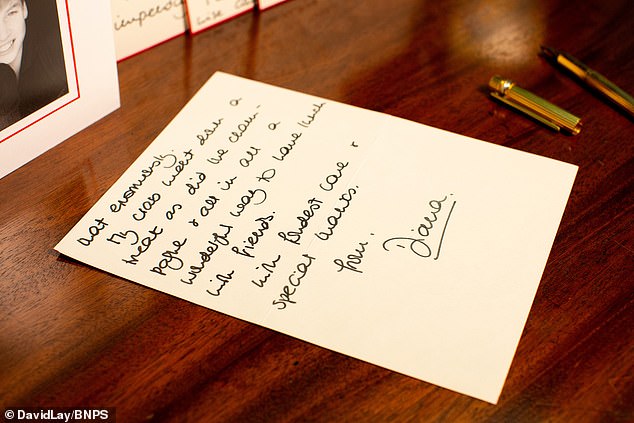 that enormously.
My crab meat dish a
treat as did the cham-
pagne & all in all a
wonderful way to have lunch
with friends.
with fondest love &
special thanks.
from.
Diana.
impeccably
© DavidLay/BNPS